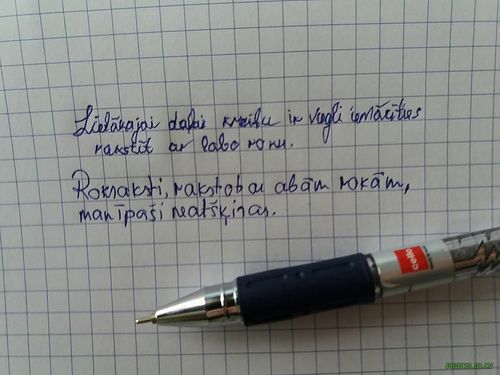 Lielākajai daļai kreiļu ir viegli iemācīties
rakstīt ar labo roku.
Rokraksti, rakstot ar abām rokām,
manīpaši neatšķiras.
cello